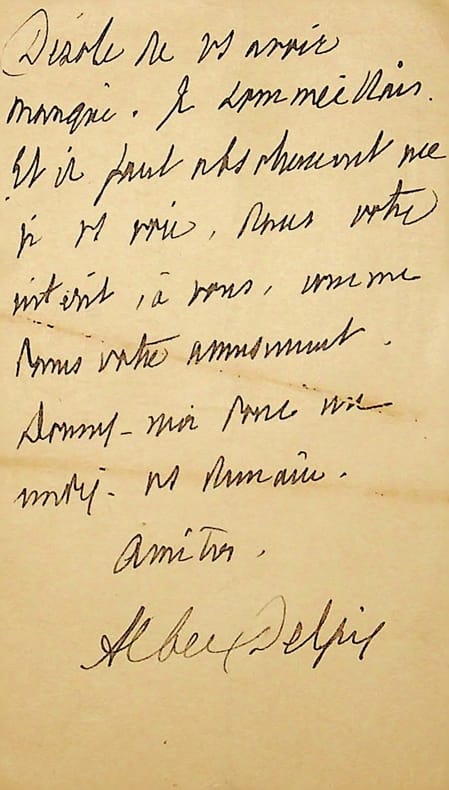 Désolé de vs avoir
manqué. Je sommeillais.
Et il faut absolument que
je vs voie, dans votre
intérêt, à vous, comme
dans votre amusement.
Donnez-moi donc un
rendez-vs demain.
Amitiés.
Albert Delpit